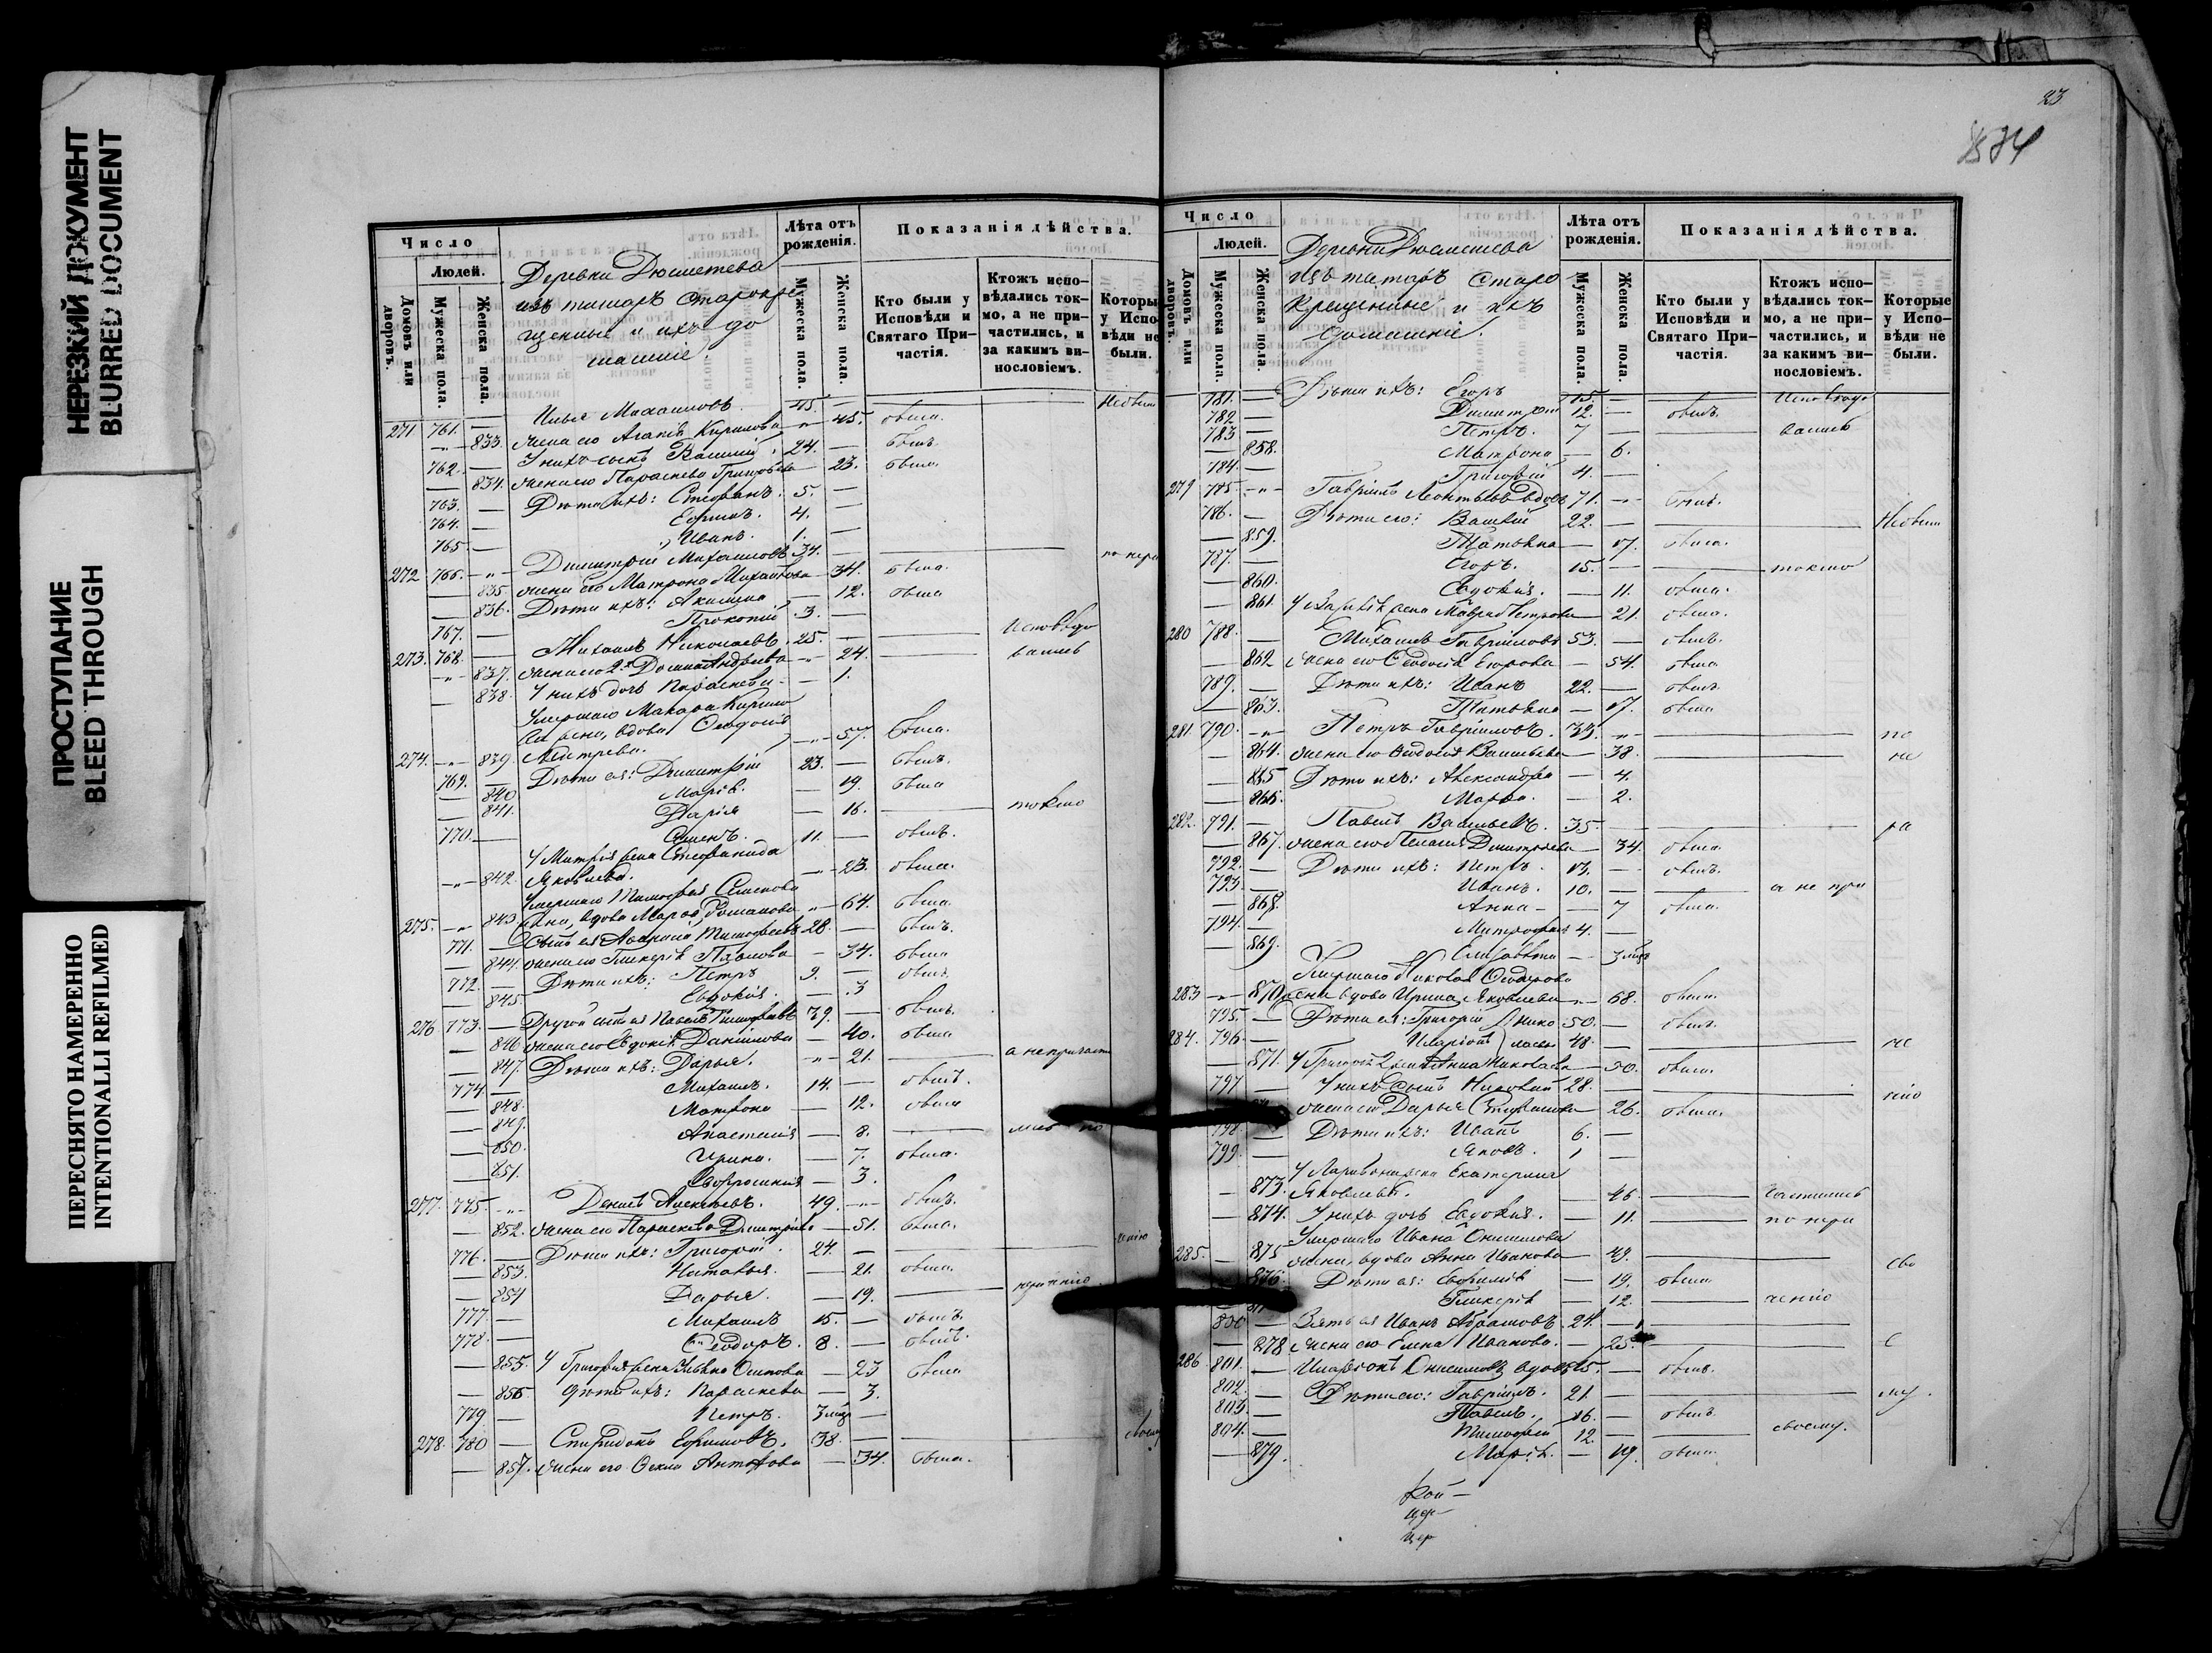 НЕРЕЗКИЙ ДОКУМЕНТ
BLURRED DOCUMENT
ПРОСТУПАНИЕ
BLEED THROUGH
ПЕРЕСНЯТО НАМЕРЕННО
INTENTIONALLI REFILMED
Число
Людей.
Домовъ или дворовъ.
Мужеска пола.
Женска пола.
Деревни Дюсметева
изъ татаръ старокре
щенные и ихъ до
машніе.
Лѣта отъ рожденія.
Мужеска пола.
Женска пола.
Показанія дѣйства.
Кто были у Исповѣди и Святаго Причастія.
Ктожъ исповѣдались токмо, а не причастились, и за какимъ винословіемъ.
Которы у Испо вѣди не были.
271 761. — Илья Михаиловъ 45. — Небыли
— 833. жена его Агапія Кирилова — 45. была.
762. — У нихъ сынъ Василій 24. — былъ.
— 834. жена его Параскева Григорьева — 23. была.
763. — Дѣти ихъ: Стефанъ. 5. —
764. — Ефимъ. 4. —
765. — Иванъ. 1. —
272 766. — Димитрій Михаиловъ 34. — по нера
— 835 жена его Матрона Михайлова — 34. была.
— 836. Дѣти ихъ: Акилина — 12. была
767. — Прокопій 3. —
273. 768. — Михаилъ Николаевъ. 25. — Исповѣдо
— 837. жена его 2я Домна Андреева — 24. вались
— 838. У нихъ дочь Параскева — 1.
Умершаго Макара Кирило
ва жена, вдова Ѳеодосія
274. — 839. Петрова. — 57. была.
769. — Дѣти ея: Димитрій 23. — былъ.
— 840 Марія. — 19. была
— 841. Дарія — 16. токмо
770. — Семенъ. 11. — былъ.
У Митрія жена Стефанида
— 842. Яковлева. — 23. была.
Умершаго Тимофея Семенова
275. — 843 жена, вдова Марфа Романова — 64. была
771. — Сынъ ея Тимофеевъ 28. — былъ.
— 844. жена его Гликерія Павлова — 34. была
772. — Дѣти ихъ: Петръ 9. — былъ.
— 845. Евдокія. — 3
276 773. — Другой сынъ ея Павелъ Тимофеевъ 39. — былъ.
— 846 жена его Евдокія Даниилова — 40. была
— 847. Дѣти ихъ: Дарья. — 21. а непричасти
774. — Михаилъ. 14. — былъ.
— 848. Матрона — 12. была
— 849. Анастасія — 8. лись по
— 850. Ирина. — 7. была.
— 851. Евфросинія — 3.
277. 775. — Данилъ Алексѣевъ. 49. — былъ.
— 852. жена его Параскева Димитріева — 51. была.
776. — Дѣти ихъ: Григорій. 24. — ченію
— 853. Наталья. — 21. была.
— 854 Дарья. — 19. нераченію.
777. — Михаилъ 15. — былъ.
778. — Ѳеодоръ. 8. — былъ.
— 855. У Григорія жена Ульяна Осипова — 23 была
— 856 Дѣти ихъ: Параскева — 3.
779 — Петръ. 3 мѣс —
278. 780 — Спиридонъ Ефимовъ. 38. — своему
— 857. жена его Ѳекла Антонова — 34. была.
23
Число
Людей.
Домовъ или дворовъ.
Мужеска пола.
Женска пола.
Деревни Дюсметева
изъ татаръ Старо
крещенные и ихъ
домашніе.
Лѣта отъ рожденія.
Мужеска пола.
Женска пола.
Показанія дѣйства.
Кто были у Исповѣди и Святаго Причастія.
Ктожъ исповѣдались токмо, а не причастились, и за какимъ винословіемъ.
Которые у Исповѣди не были.
781. — Дѣти ихъ: Егоръ 15. — Исповѣдо
782 — Димитрій 12. — былъ.
783 — Петръ. 7 — вались
— 858. Матрона — 6.
784. — Григорій 4. —
279 785. — Гавріилъ Леонтьевъ вдовъ 71. — былъ.
786. — Дѣти его: Василій 22. — Небыли
— 859. Татьяна — 17. была.
787. — Егоръ. 15. — токмо
— 860. Евдокія. — 11. была.
— 861. У Василія жена Мавра Петрова — 21. была.
280 788. — Михаилъ Гавріиловъ 53. — былъ.
— 862 жена его Ѳеодосія Егорова — 54. была
789. — Дѣти ихъ: Иванъ 22. — былъ
— 863. Татьяна — 17. была
281. 790. — Петръ Гавріиловъ. 33. — по
— 864. жена его Ѳеодосія Васильева — 38. не
— 865 Дѣти ихъ: Александра — 4.
— 866. Марѳа. — 2.
282. 791. — Павелъ Васильевъ. 35. — ра
— 867. жена его Пелагія Димитріева — 34. была.
792. — Дѣти ихъ: Петръ. 13. — былъ.
793. — Иванъ. 10. — а не при
— 868. Анна — 7 была.
794. — Митрофанъ 4. —
— 869. Елизавета — 3 мѣс
Умершаго Николая Ѳедорова
283 — 870 жена вдова Ирина Яковлева — 68. была.
795. — Дѣти ея: Григорій Нико 50. — былъ.
284. 796. — Иларіонъ лаевы 48. — че
— 871. У Григорія 2я жена Анна Николаева — 50. была.
797 — У нихъ сынъ 28. — нію
жена его Дарья Стефанова — 26. была.
798. — Дѣти ихъ: Иванъ 6. —
799. — Яковъ. 1 —
У Ларіона жена Екатерина
— 873. Яковлева. — 46. частились
— 874. У нихъ дочь Евдокія. — 11. по нера
Умершаго Ивана Онисимова
285. — 875 жена, вдова Анна Иванова — 49. сво
— 876 Дѣти ея: Евфимія — 19. была
Гликерія — 12. ченію
800 — Зять ея Иванъ Абрамовъ 24. —
— 878 жена его Елена Иванова. — 25. е
286 801. — Иларіонъ Онисимовъ вдовъ 45. — былъ.
802. — Дѣти его: Гавріилъ. 21. — му.
803. — Павелъ. 16. — былъ
804. — Тимофей 12. — своему.
— 879. Марія. — 19. была.